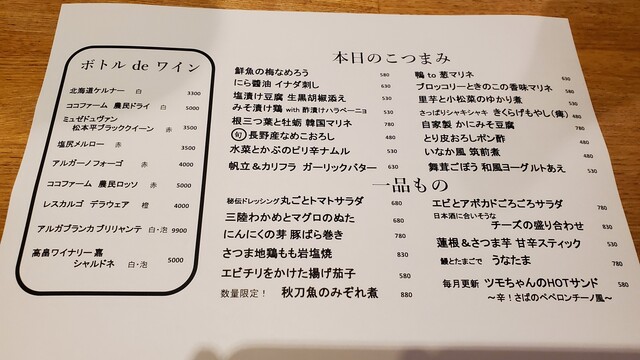 ボトル de ワイン
北海道ケルナー 白 3300
ココファーム 農民ドライ 白 5000
ミュゼドゥヴァン
松本平ブラッククイーン 赤 3500
塩尻メルロー 赤 3500
アルガーノフォーゴ 赤 4000
ココファーム 農民ロッソ 赤 5000
レスカルゴ デラウェア 橙 4000
アルガブランカ ブリリャンテ 白・泡 9900
高畠ワイナリー 嘉
シャルドネ 白・泡 5000
本日のこつまみ
鮮魚の梅なめろう 580
にら醬油 イナダ刺し 630
塩漬け豆腐 生黒胡椒添え 530
みそ漬け鶏 with 酢漬けハラペーニョ 530
根三つ葉と牡蛎 韓国マリネ 780
旬 長野産なめこおろし 480
水菜とかぶのピリ辛ナムル 530
帆立&カリフラ ガーリックバター 630
鴨 to 葱マリネ 630
ブロッコリーときのこの香味マリネ 580
里芋と小松菜のゆかり煮 530
さっぱりシャキシャキ きくらげもやし(痺) 480
自家製 かにみそ豆腐 780
とり皮おろしポン酢 480
いなか風 筑前煮 480
舞茸ごぼう 和風ヨーグルトあえ 530
一品もの
秘伝ドレッシング 丸ごとトマトサラダ 680
三陸わかめとマグロのぬた 680
にんにくの芽 豚ばら巻き 780
さつま地鶏もも岩塩焼 830
エビチリをかけた揚げ茄子 580
数量限定! 秋刀魚のみぞれ煮 880
エビとアボカドごろごろサラダ 780
日本酒に合いそうな
チーズの盛り合わせ 830
蓮根&さつま芋 甘辛スティック 530
鰻とたまごで うなたま 780
毎月更新 ツモちゃんのHOTサンド 580
~辛!さばのペペロンチーノ風~